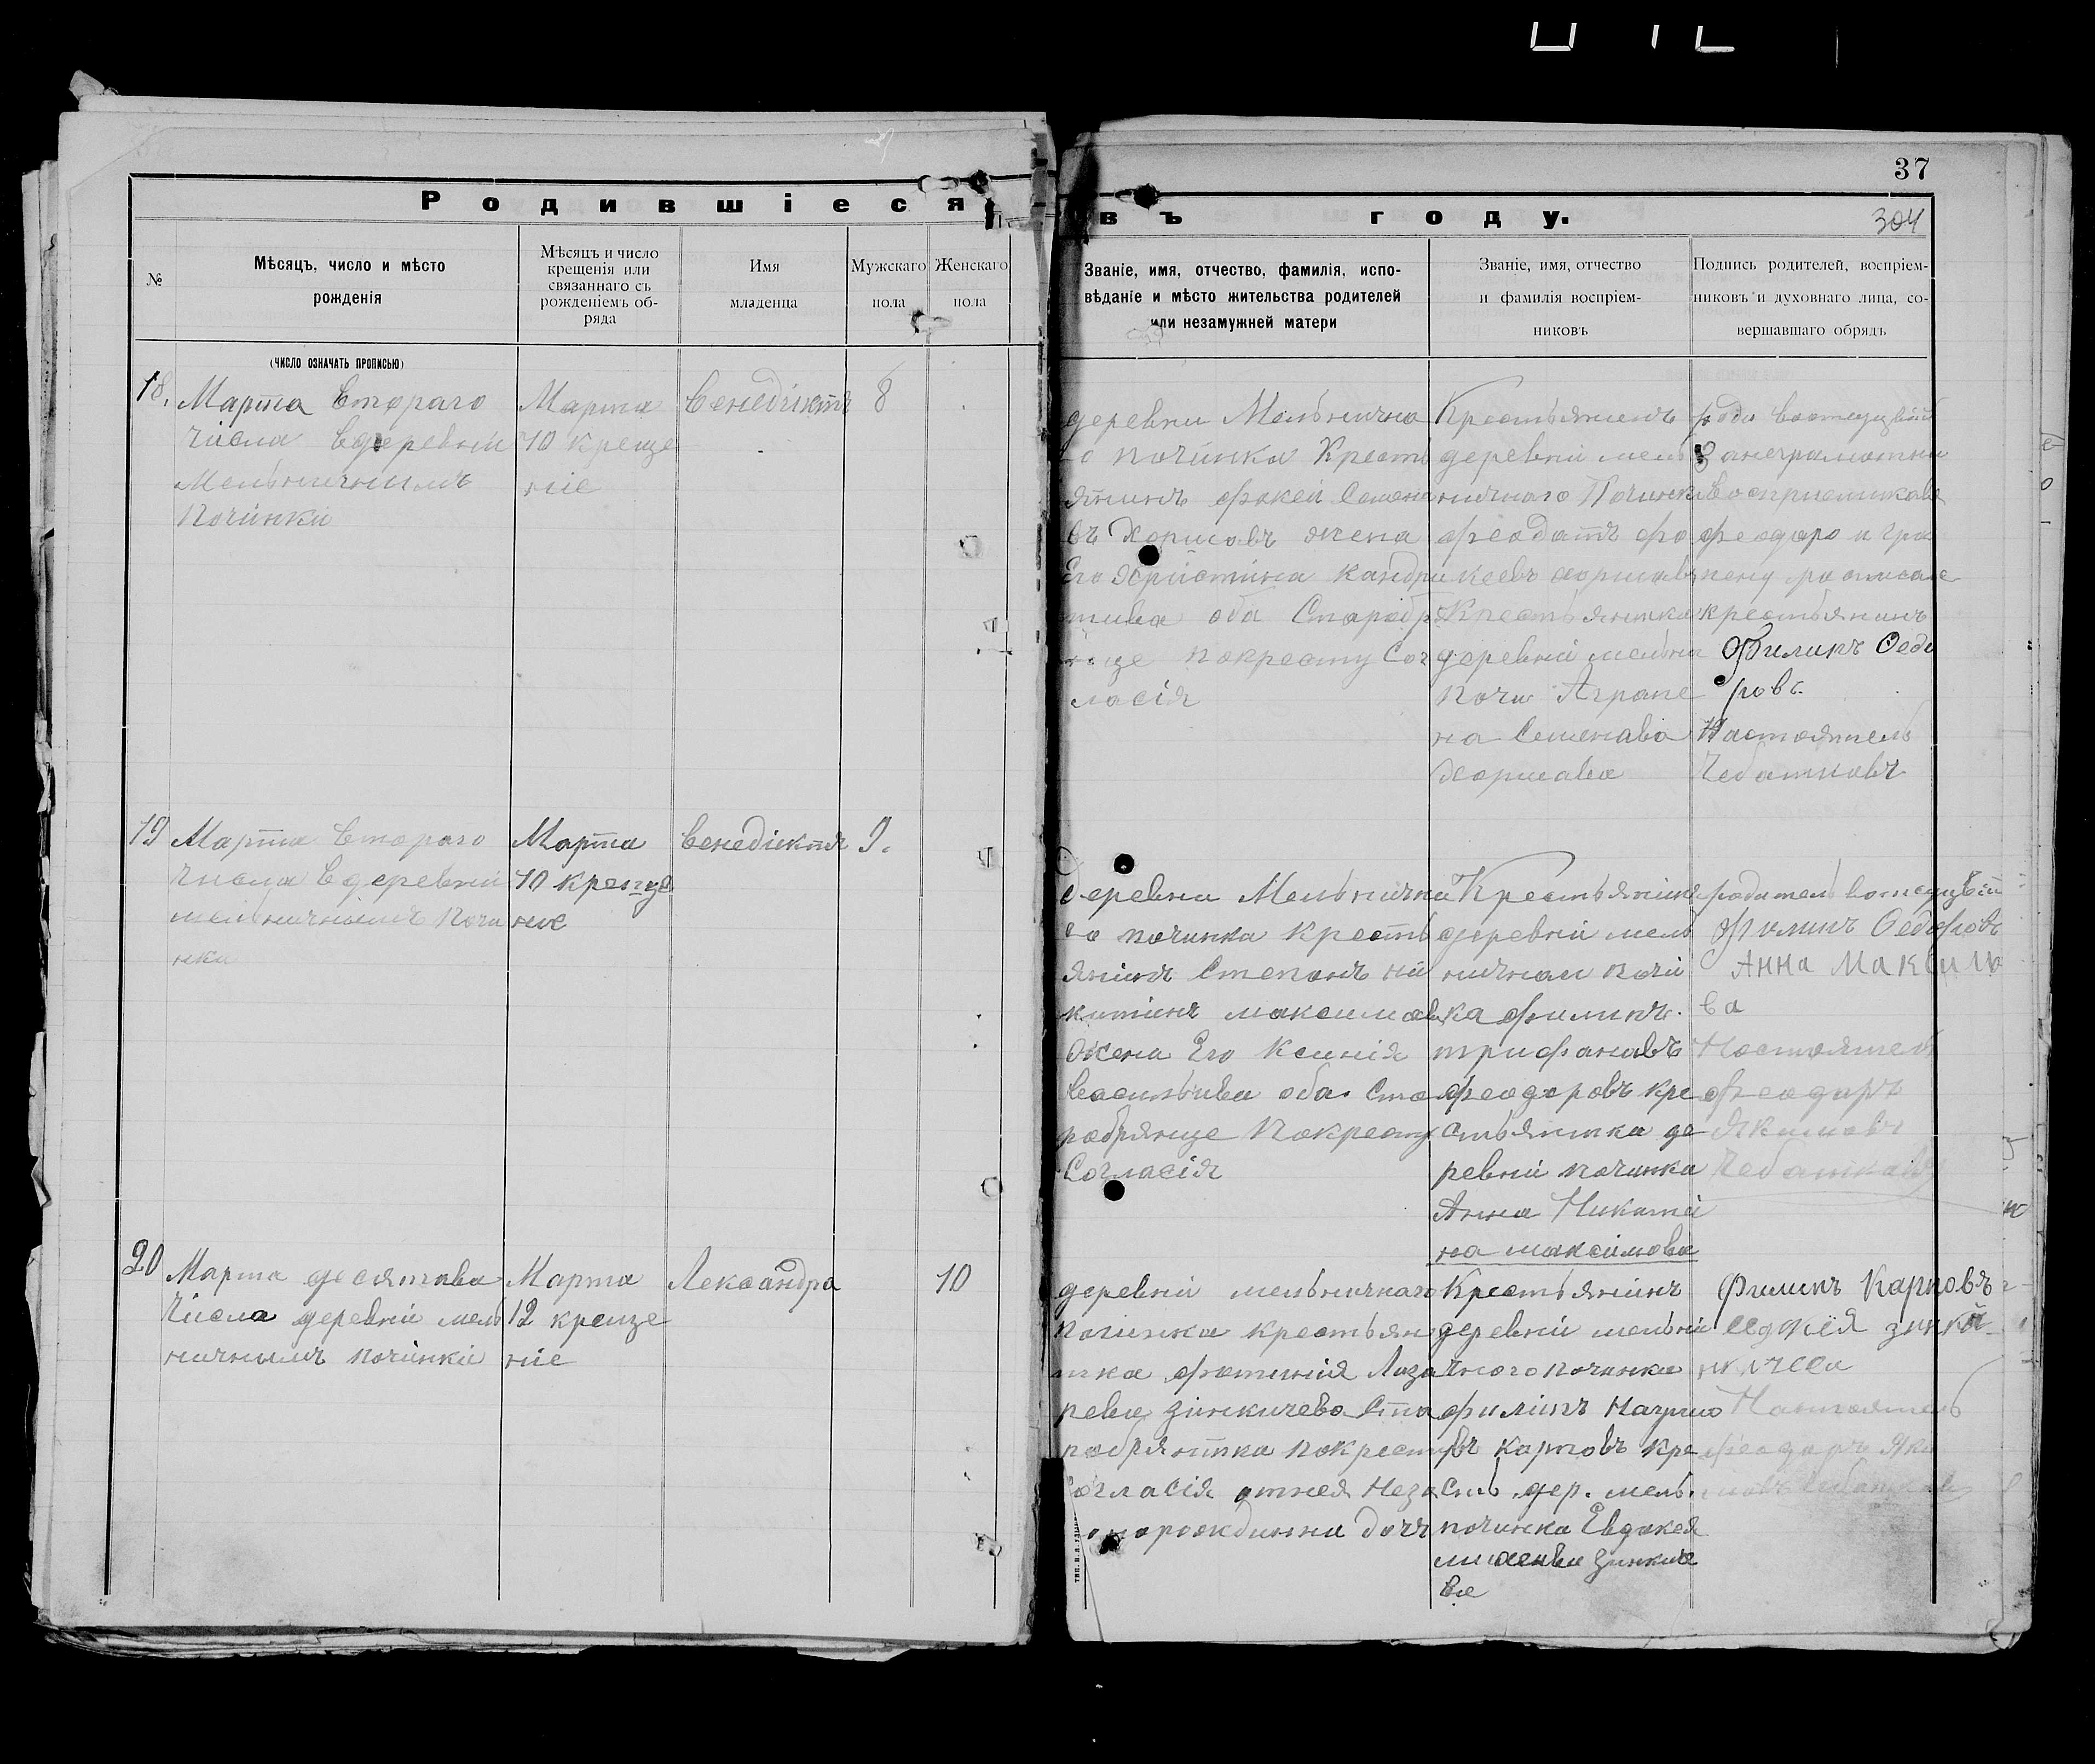 37
Родившіеся въ году.
304
№
Мѣсяцъ, число и мѣсто
рожденія
(число означать прописью)
Мѣсяцъ и число
крещенія или
связаннаго съ
рожденіемъ об-
ряда
Имя
младенца
Мужскаго
пола
Женскаго
пола
Званіе, имя, отчество, фамилія, испо-
вѣданіе и мѣсто жительства родителей
или незамужней матери
Званіе, имя, отчество
и фамилія воспріем-
никовъ
Подпись родителей, воспріем-
никовъ и духовнаго лица, со-
вершавшаго обрядъ
18.
Марта втораго
числа вдеревни
Мельничнымъ
Починки
Марта
10 креще
ніе
Венедіктъ
8
деревни Мельнична
о починка Крестъ
янинъ фокей Семено
въ Хормовъ жена
Его Христина кандра
оба Старобр
покресту Сог
ласія
Крестьянинъ
деревни мель
ничнаго Починка
феодатъ фо
кеевъ
Крестьянка
деревни мельни
почи Аграпе
на Семенава
Хормава
неграмотни
феодоро и гра
крестьянинъ
Филипъ Федо
ровъ.
Настоятель
Чебатковъ
19
Марта втораго
числа вдеревни
мельничнымъ почи
нки
Марта
10 креще
ніе
Венедіктъ
9.
деревни Мельнична
го починка кресть
янинъ Степанъ ни
китинъ максимовъ
Жена Его Ксинія
Васильива оба Ста
робрянце Покресту
Согласія
Крестьянин
деревни мель
ничнаи почи
ка филипъ.
трифанавъ
феодоровъ кре
стьянка де
ревни починка
Анна Никити
на максимова
Филипъ Федоровъ
Анна Максимо
ва
Настоятель
феодаръ
Якимовъ
Чебатковъ
20
Марта десятава
Числа деревни мель
ничнымъ починки
Марта
12 креще
ніе
Лександра
10
деревни мельничнаго
починка крестьян
тка фотиния Лаза
рева Зинкичево Ста
робрянтка покресту
Согласія отнея Неза
рождинна дочъ
Крестьянинъ
деревни мельни
чного починка
филипъ Наумо
въ карповъ кре
сть дер. мель.
починка Евдакея
Зинкиче
ва
Филипъ Карповъ
Настоятель
феодаръ Яки
мовъ Чебатковъ